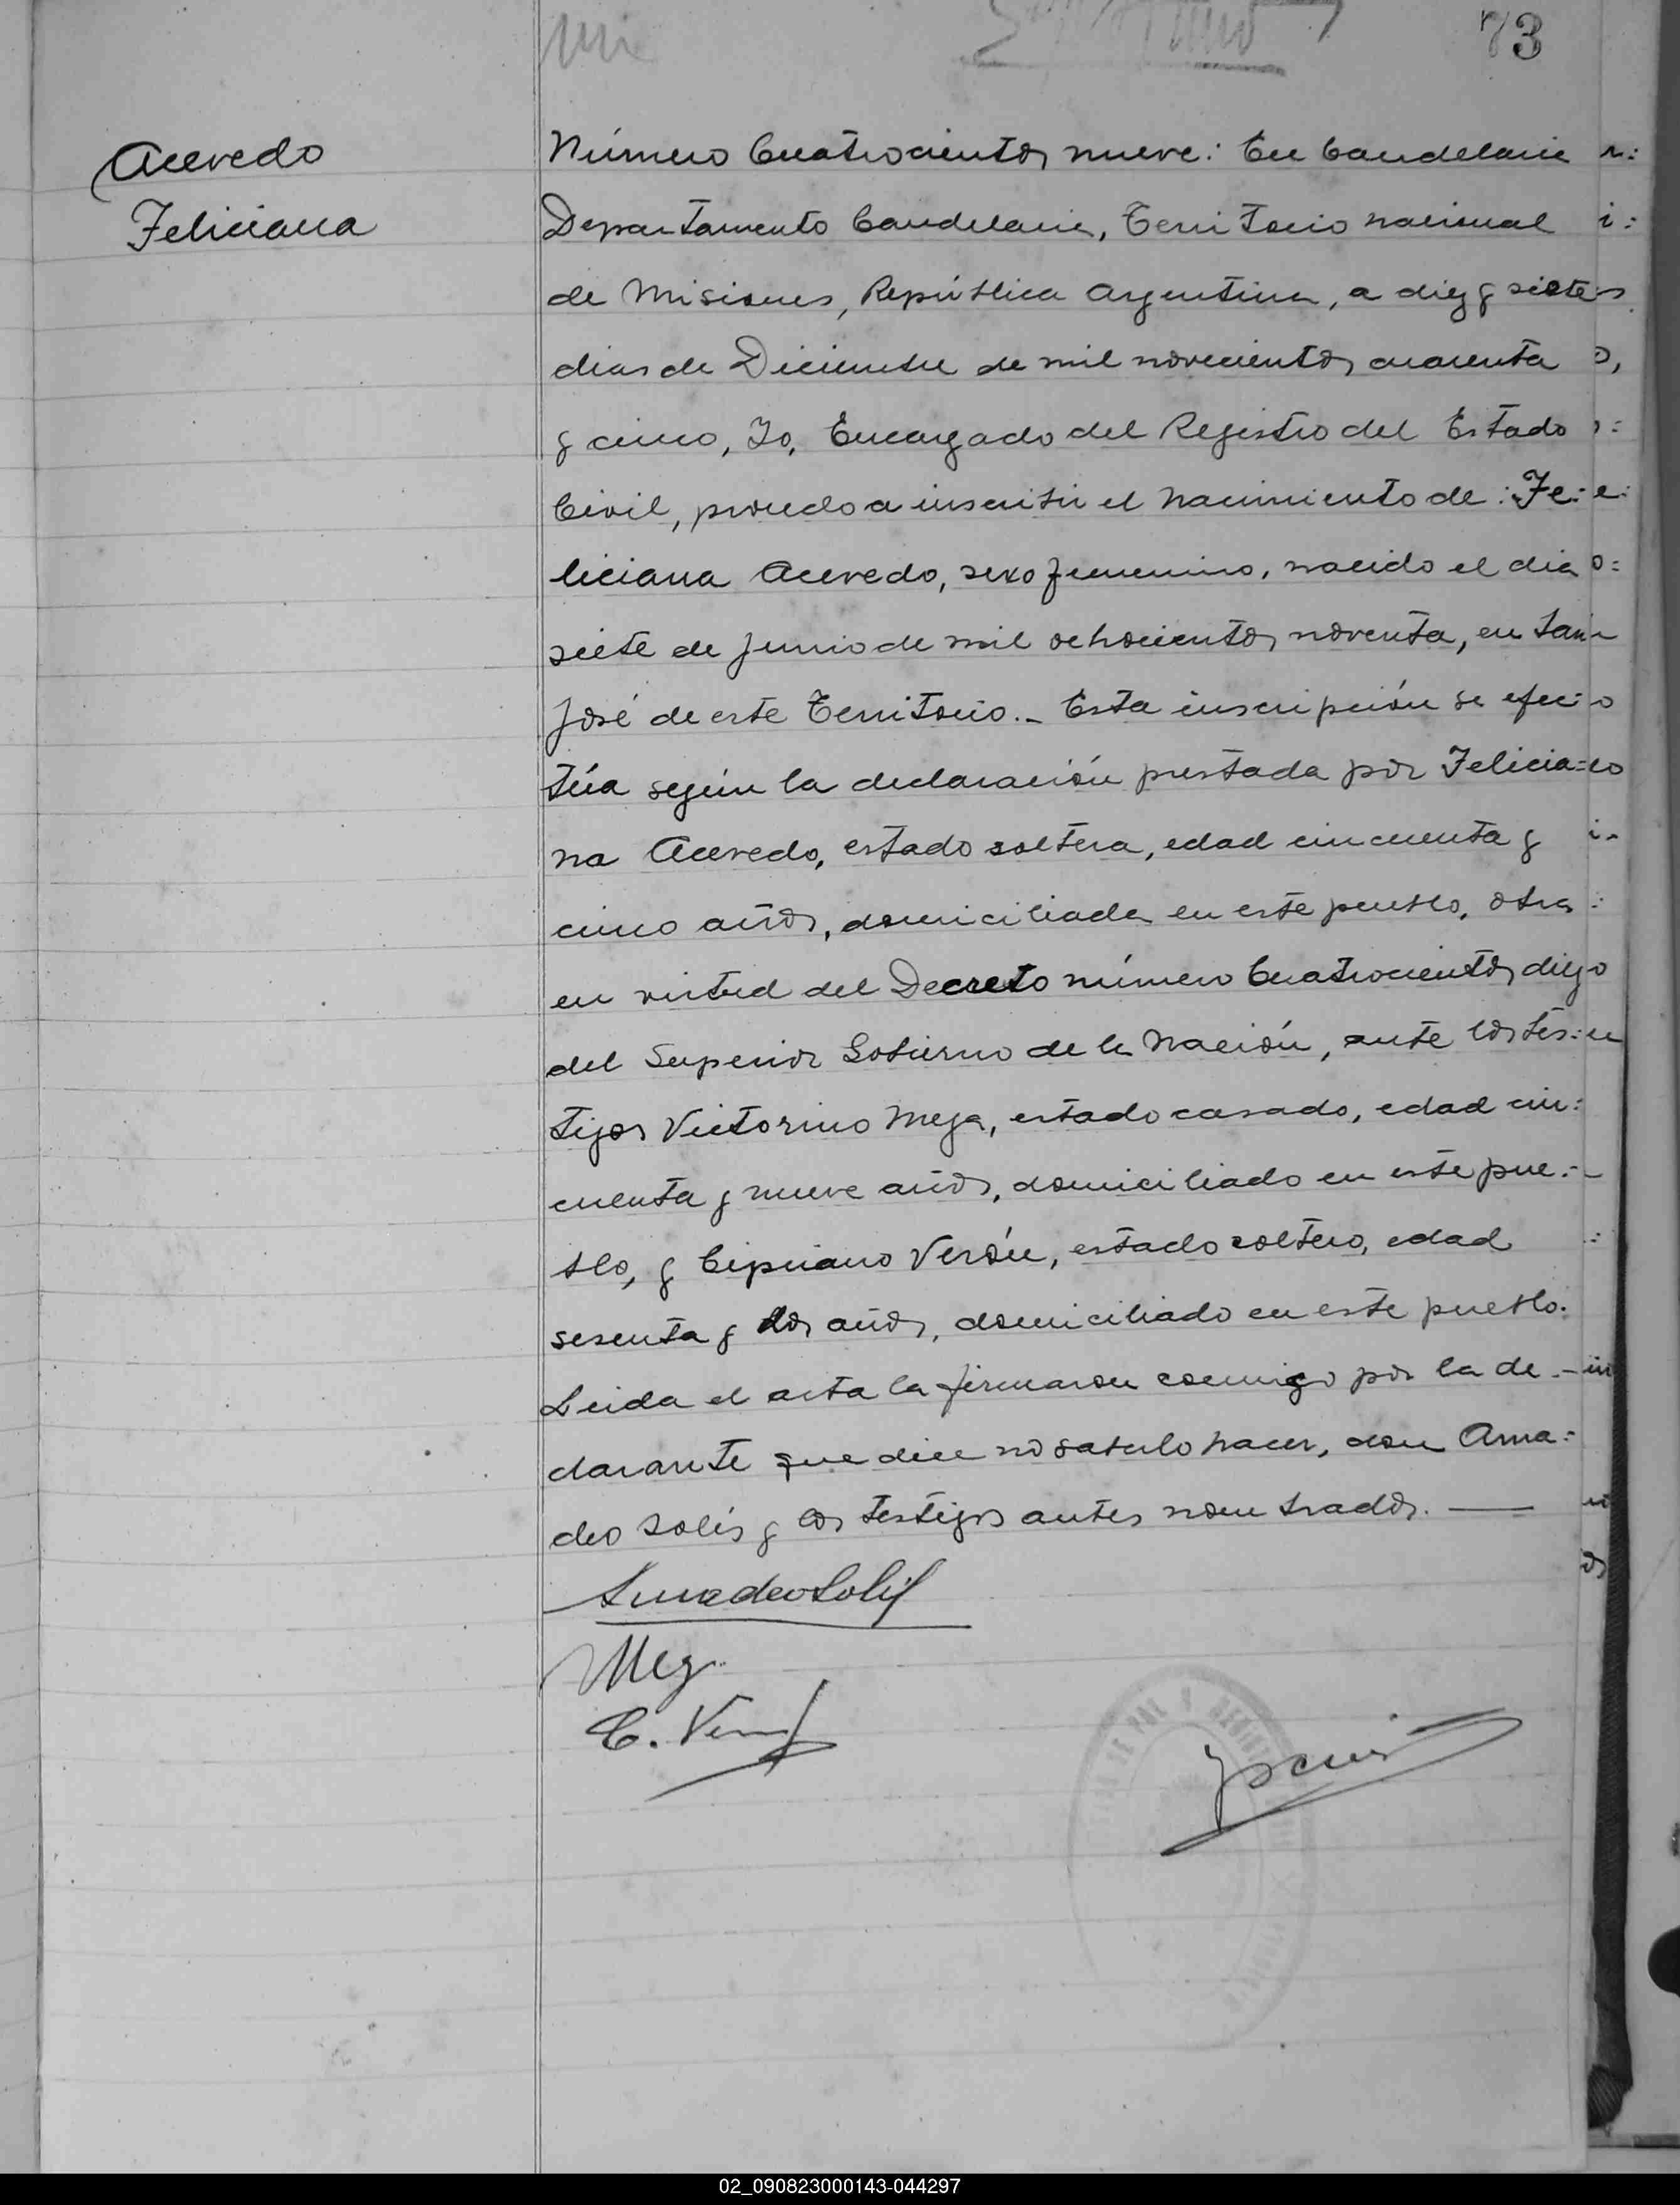 73
Acevedo
Feliciana
Número Cuatrocientos nueve: En Candelaria
Departamento Candelaria, Territorio nacional
de Misiones, República Argentina, a diez y siete
dias de Diciembre de mil novecientos cuarenta
y cinco, Yo, Encargado del Registro del Estado
Civil, procedo a inscribir el nacimiento de: Fe:
liciana Acevedo, sexo femenino, nacido el dia
siete de junio de mil ochocientos noventa, en San
José de este Territorio._ Esta inscripción se efec:
túa según la declaración prestada por Felicia=
na Acevedo, estado soltera, edad cincuenta y
cinco años, domiciliada en este pueblo, obra
en virtud del Decreto número Cuatrocientos diez
del Superior Gobierno de la Nación, ante los tes:
tigos Victorino Meza, estado casado, edad cin:
cuenta y nueve años, domiciliado en este pue:
blo, y Cipriano Verón, estado soltero, edad
sesenta y dos años, domiciliado en este pueblo.
Leida el acta la firmaron conmigo por la de-
clarante que dice no saberlo hacer, don Ama:
deo Solís y los testigos antes nombrados. —
Amadeo Solis
Meza
C. Verón
02_090823000143-044297